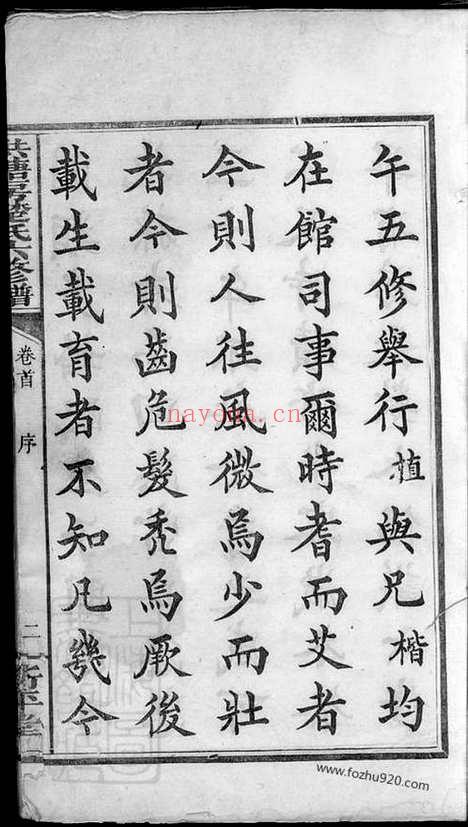 午五修舉行植與兄楷均
在館司事爾時耆而艾者
今則人往風微焉少而壯
者今則齒危髮秃焉厥後
載生載育者不知凡幾今
氏六修譜
卷首
序
二
nayona.cn
www.fozhu920.com